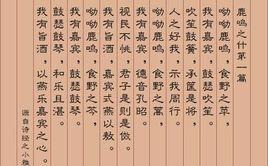 鹿鸣之什第一篇
呦呦鹿鸣，食野之苹，
我有嘉宾，鼓瑟吹笙。
吹笙鼓簧，承筐是将，
人之好我，示我周行。
呦呦鹿鸣，食野之蒿，
我有嘉宾，德音孔昭。
视民不恌，君子是则是傚。
我有旨酒，嘉宾式燕以敖。
呦呦鹿鸣，食野之芩，
我有嘉宾，鼓瑟鼓琴。
鼓瑟鼓琴，和乐且湛。
我有旨酒，以燕乐嘉宾之心。
源自诗经之小雅